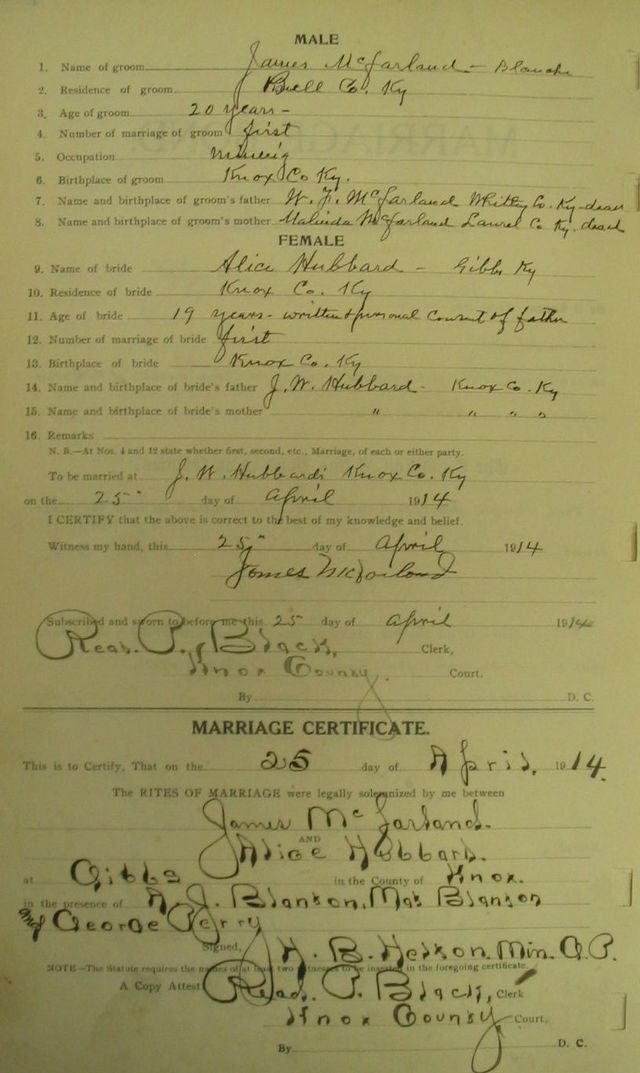 MALE
1. Name of groom James McFarland - Blanche
2. Residence of groom Bell Co. Ky
3. Age of groom 20 years -
4. Number of marriage of groom first
5. Occupation mining
6. Birthplace of groom Knox Co Ky.
7. Name and birthplace of groom's father W. F. McFarland Whitley Co. Ky-dead
8. Name and birthplace of groom's mother Malinda McFarland Laurel Co Ky. dead
FEMALE
9. Name of bride Alice Hubbard - Gibbs Ky
10. Residence of bride Knox Co. Ky
11. Age of bride 19 years - written & personal consent of father
12. Number of marriage of bride first
13. Birthplace of bride Knox Co. Ky
14. Name and birthplace of bride's father J. W. Hubbard - Knox Co. Ky
15. Name and birthplace of bride's mother " " " "
16. Remarks
N. B.—At Nos. 4 and 12 state whether first, second, etc., Marriage, of each or either party.
To be married at J. W. Hubbard's Knox Co. Ky
on the 25" day of April 1914
I CERTIFY that the above is correct to the best of my knowledge and belief.
Witness my hand, this 25" day of April 1914
James McFarland
Subscribed and sworn to before me this 25 day of April 1914
Read. P. Black, Clerk,
Knox County Court.
By D. C.
MARRIAGE CERTIFICATE.
This is to Certify, That on the 25 day of April, 1914.
The RITES OF MARRIAGE were legally solemnized by me between
James McFarland.
AND
Alice Hubbard.
at Gibbs in the County of Knox.
in the presence of A. J. Blanton, Mat Blanton
and George Perry
Signed, H. B. Helton. Min. G. P.
NOTE—The Statute requires the names of at least two witnesses to be inserted in the foregoing certificate.
A Copy Attest Read. P. Black, Clerk
Knox County Court,
By D. C.